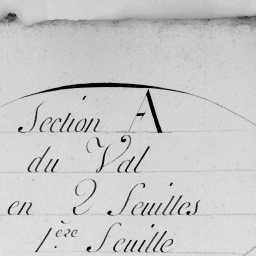 Section A
du Val
en 2 Feuilles
1ère Feuille